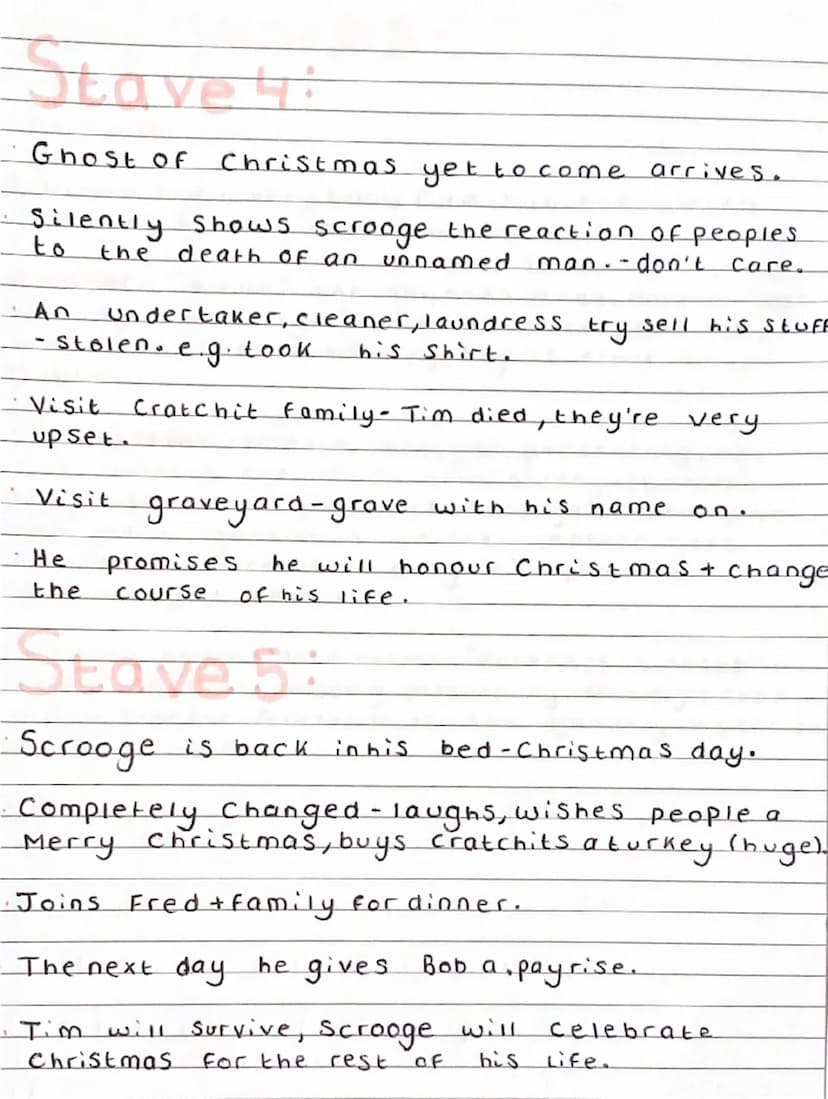 Stave 4:
· Ghost of Christmas yet to come arrives.
· Silently shows scrooge the reaction of peoples
to the death of an unnamed man. - don't care.
· An undertaker, cleaner, laundress try sell his stuff
- stolen. e.g. took his shirt.
· Visit Cratchit family - Tim died, they're very
upset.
· Visit graveyard - grave with his name on.
· He promises he will honour Christmas + change
the course of his life.
Stave 5:
· Scrooge is back in his bed - Christmas day.
· Completely changed - laughs, wishes people a
Merry Christmas, buys cratchits a turkey (huge).
· Joins Fred + family for dinner.
· The next day he gives Bob a payrise.
· Tim will survive, Scrooge will celebrate
Christmas for the rest of his life.